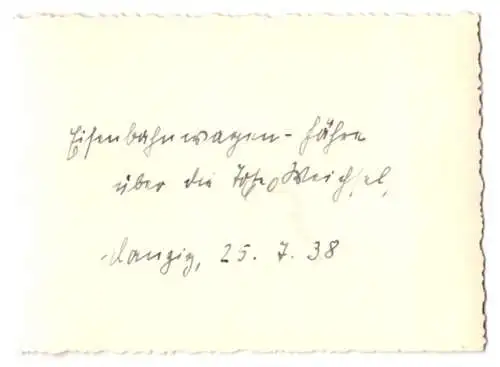 Eisenbahnwagen-Fähre
über die Tote Weichsel,
Danzig, 25. 7. 38